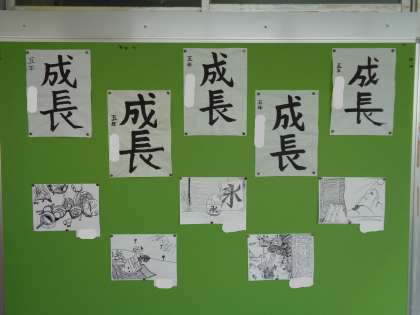 成長
五年
成長
五年
成長
五年
成長
五年
成長
五年
永
永